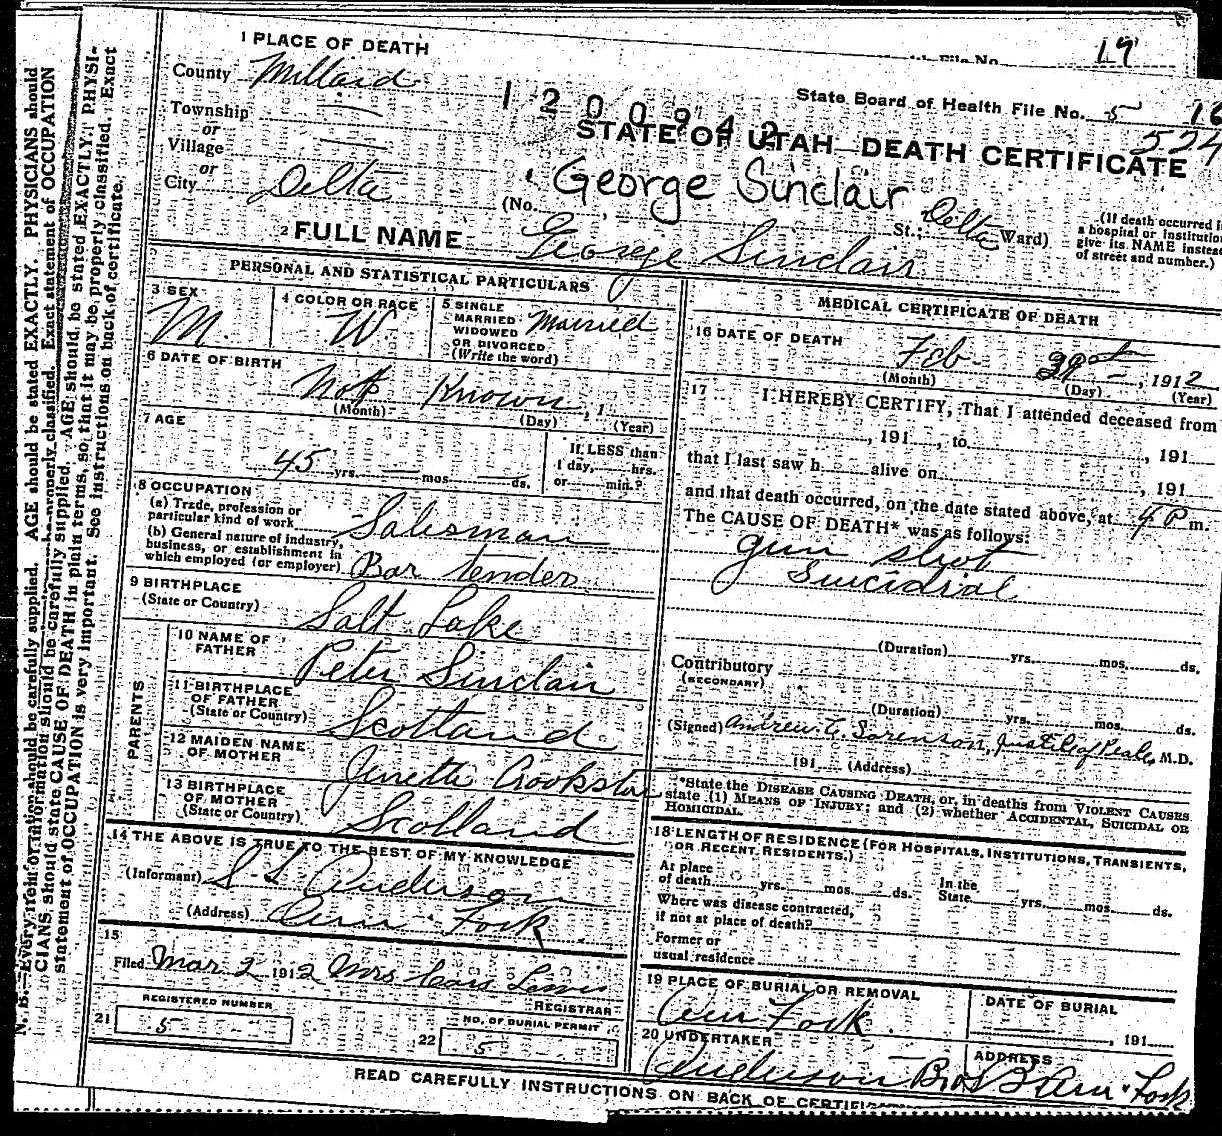 1 PLACE OF DEATH
File No. 19
County Millard
1200942
State Board of Health File No. 5 16
Township
or
Village
or
City Delta
STATE OF UTAH DEATH CERTIFICATE
524
George Sinclair
(No. St.; Delta Ward)
(If death occurred in
a hospital or institution
give its NAME instead
of street and number.)
2 FULL NAME George Sinclair
PERSONAL AND STATISTICAL PARTICULARS
3 SEX
M.
4 COLOR OR RACE
W
5 SINGLE
MARRIED
WIDOWED
OR DIVORCED
(Write the word)
Married
6 DATE OF BIRTH
Not Known, 1
(Month) (Day) (Year)
7 AGE
45 yrs. mos. ds.
If LESS than
1 day, hrs.
or min.?
8 OCCUPATION
(a) Trade, profession or
particular kind of work Salesman
(b) General nature of industry,
business, or establishment in
which employed (or employer) Bar tender
9 BIRTHPLACE
(State or Country) Salt Lake
PARENTS
10 NAME OF
FATHER Peter Sinclair
11 BIRTHPLACE
OF FATHER
(State or Country) Scotland
12 MAIDEN NAME
OF MOTHER Jenette Crookston
13 BIRTHPLACE
OF MOTHER
(State or Country) Scotland
14 THE ABOVE IS TRUE TO THE BEST OF MY KNOWLEDGE
(Informant) S. L Anderson
(Address) Am. Fork
15
Filed Mar 2 1912 Mrs Lewis
REGISTRAR
REGISTERED NUMBER
21 5
NO. OF BURIAL PERMIT
22 5
MEDICAL CERTIFICATE OF DEATH
16 DATE OF DEATH
Feb , 1912
(Month) (Day) (Year)
17 I HEREBY CERTIFY, That I attended deceased from
, 191 , to , 191
that I last saw h alive on , 191
and that death occurred, on the date stated above, at 4 P m.
The CAUSE OF DEATH* was as follows:
gun shot
Suicidial
(Duration) yrs. mos. ds.
Contributory
(SECONDARY)
(Duration) yrs. mos. ds.
(Signed) Andrew C. Sorenson, Justice of Peace, M.D.
191 (Address)
*State the DISEASE CAUSING DEATH, or, in deaths from VIOLENT CAUSES
state (1) MEANS OF INJURY; and (2) whether ACCIDENTAL, SUICIDAL OR
HOMICIDAL.
18 LENGTH OF RESIDENCE (FOR HOSPITALS, INSTITUTIONS, TRANSIENTS,
OR RECENT RESIDENTS.)
At place
of death yrs. mos. ds.
In the
State yrs. mos. ds.
Where was disease contracted,
if not at place of death?
Former or
usual residence
19 PLACE OF BURIAL OR REMOVAL
Am Fork.
DATE OF BURIAL
, 191
20 UNDERTAKER
Anderson Bros
ADDRESS
Am. Fork
READ CAREFULLY INSTRUCTIONS ON BACK OF CERTIFI
N. B.—Every item of information should be carefully supplied. AGE should be stated EXACTLY. PHYSICIANS should
CIANS, should state CAUSE OF DEATH in plain terms, so that it may be properly classified. Exact statement of OCCUPATION
statement of OCCUPATION is very important. See instructions on back of certificate.
supplied. AGE should be stated EXACTLY. PHYSI-
so that it may be properly classified. Exact